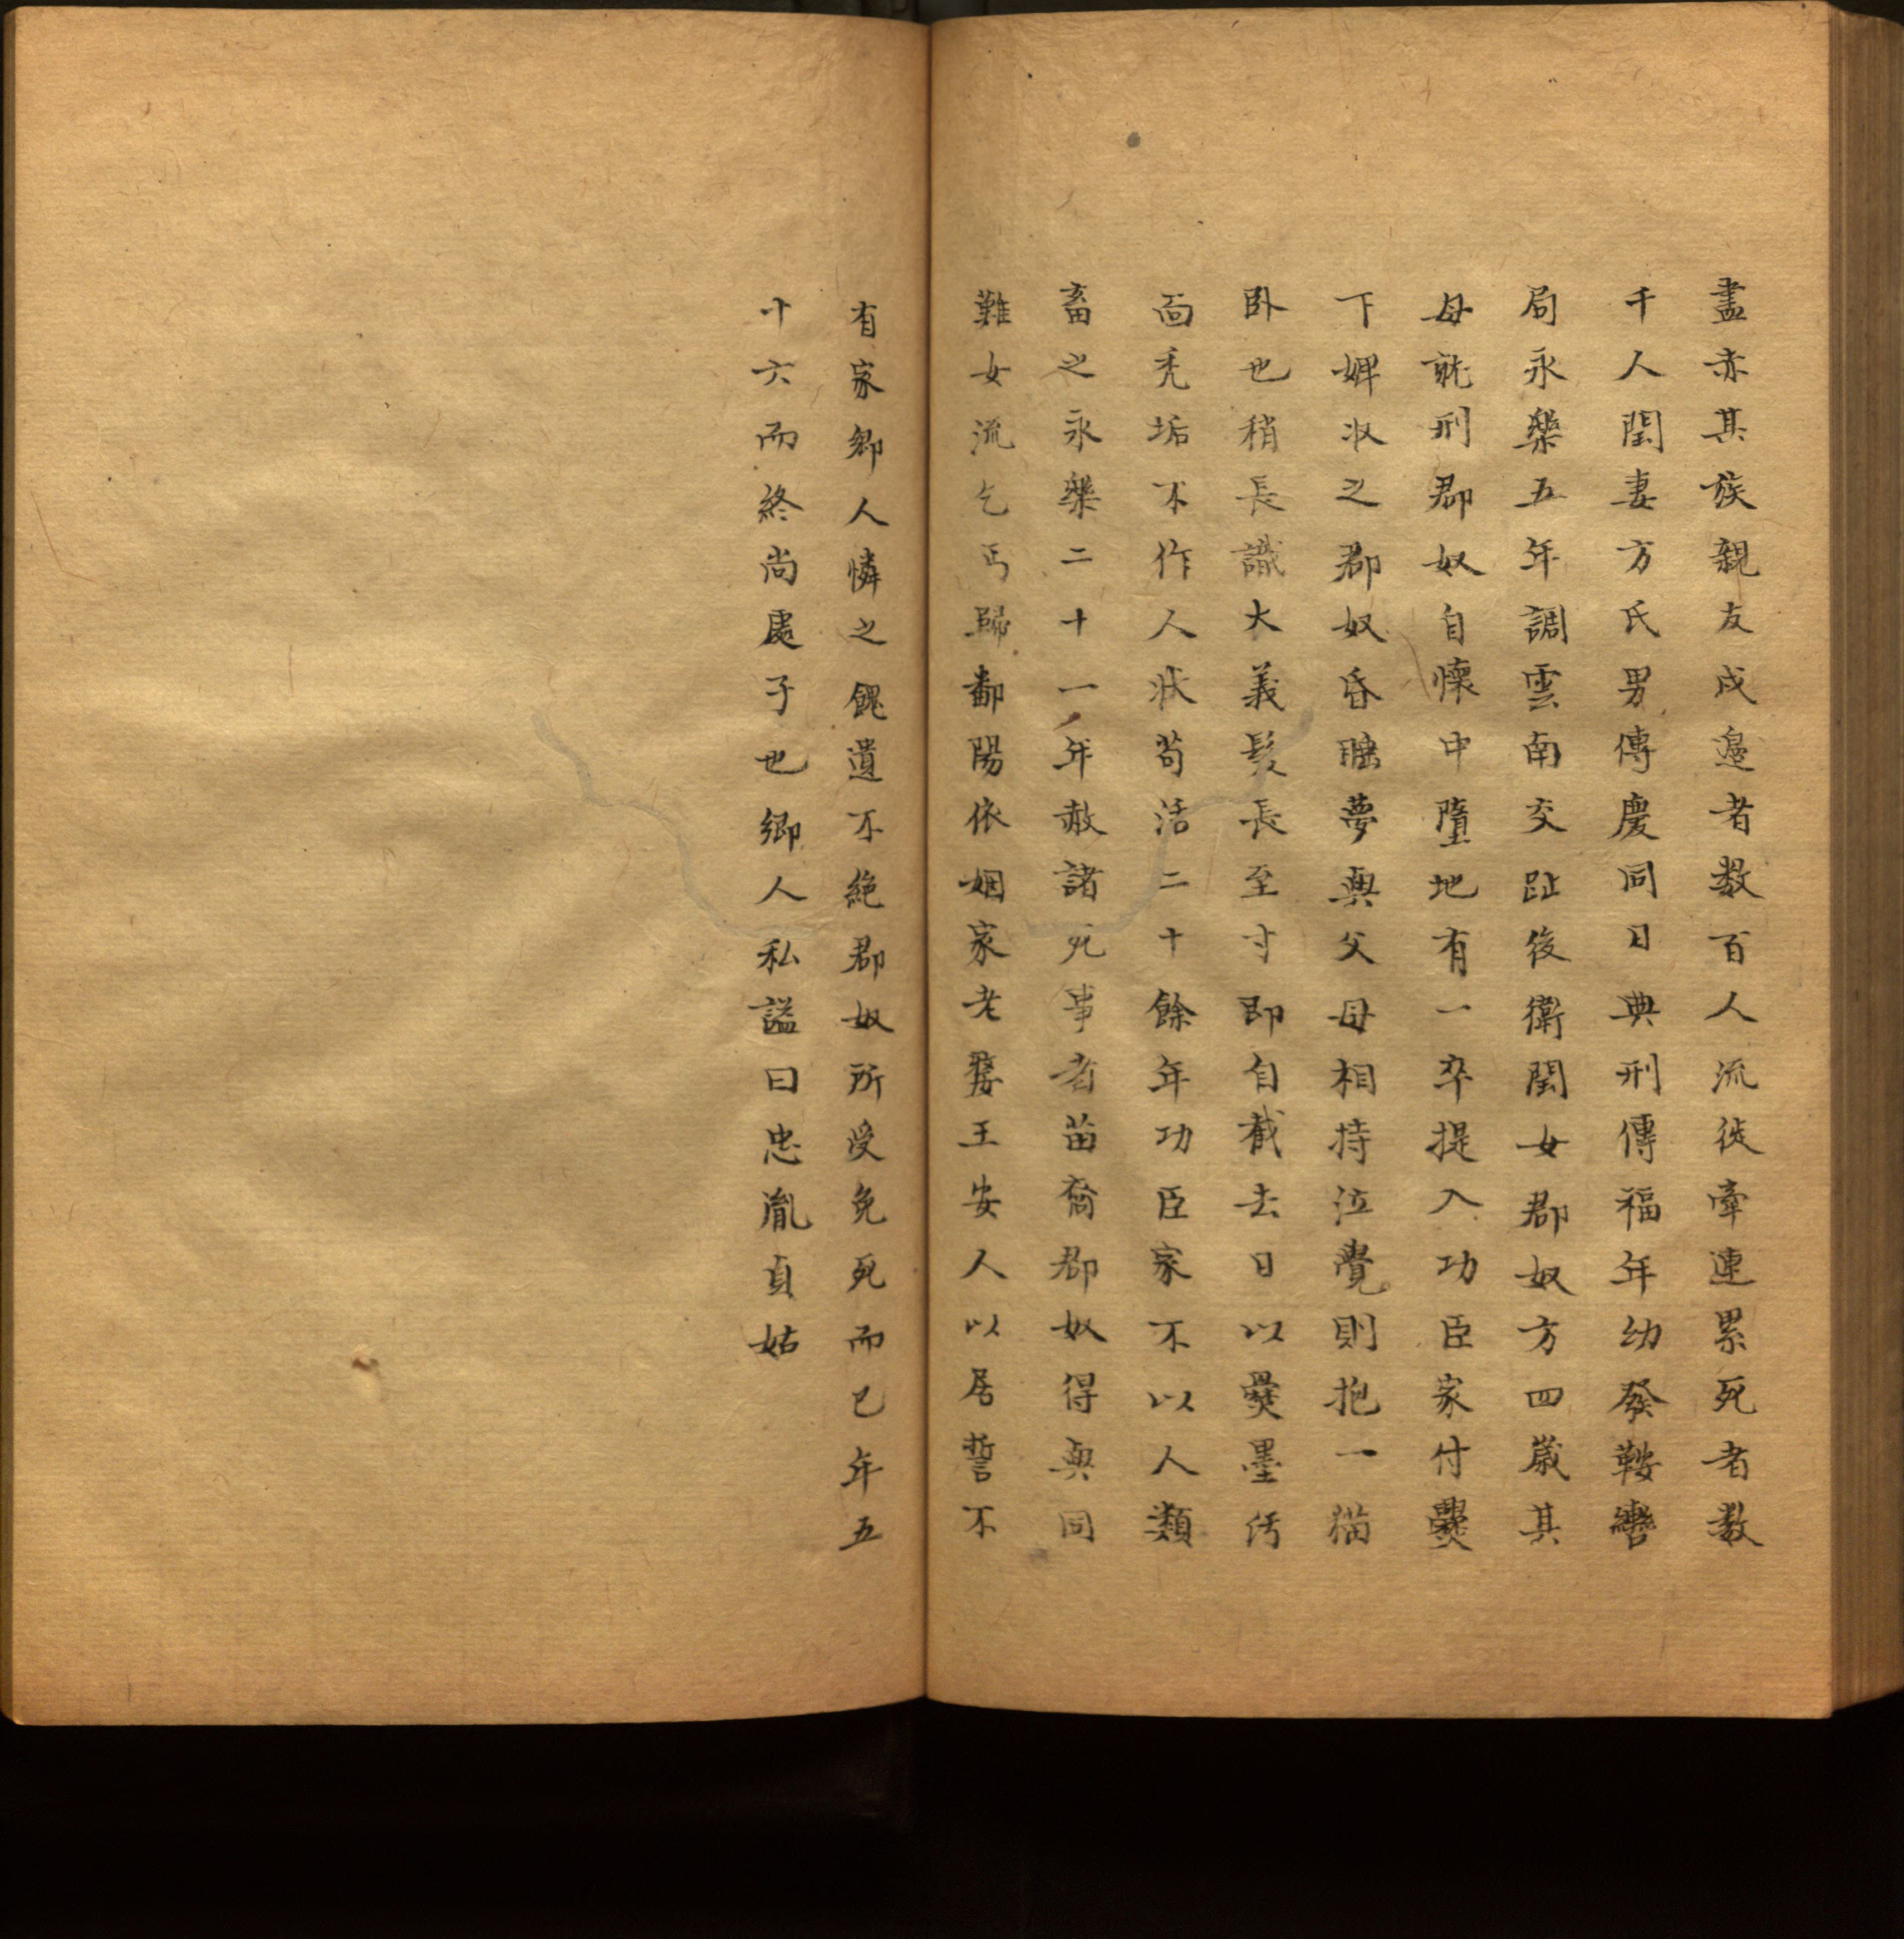 盡赤其族親友戍邉者數百人流徙牽連累死者數
千人閏妻方氏男傳慶同日典刑傳福年幼發鞍轡
局永樂五年調雲南交趾後衛閏女郡奴方四歲其
母就刑郡奴自懷中墮地有一卒提入功臣家付爨
下婢收之郡奴昏瞶夢與父母相持泣覺則抱一猫
卧也稍長識大義髮長至寸即自截去日以爨墨污
面禿垢不作人狀苟活二十餘年功臣家不以人類
畜之永樂二十一年赦諸死事者苗裔郡奴得與同
難女流乞丐歸鄱陽依姻家老嫠王安人以居誓不
有家鄉人憐之餽遺不絶郡奴所受免死而已年五
十六而終尚處子也鄉人私謚曰忠胤貞姑